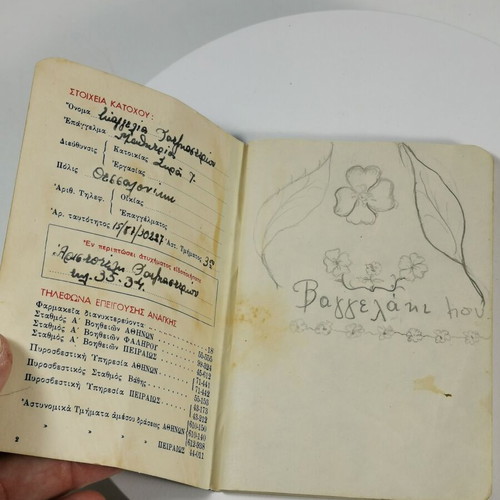 ΣΤΟΙΧΕΙΑ ΚΑΤΟΧΟΥ:
Ὄνομα Εὐαγγελία
Ἐπάγγελμα Μαθήτρια
Διεύθυνσις Κατοικίας
Ἐργασίας
Πόλις Θεσσαλονίκη
Ἀριθ. Τηλεφ. Οἰκίας
Ἐπαγγέλματος
Ἀρ. ταυτότητος Ἀστ. Τμήματος
Ἐν περιπτώσει ἀτυχήματος εἰδοποιήσατε
Ἀριστοτέλη
τηλ. 35-34.
ΤΗΛΕΦΩΝΑ ΕΠΕΙΓΟΥΣΗΣ ΑΝΑΓΚΗΣ
Φαρμακεῖα διανυκτερεύοντα 18
Σταθμὸς Α΄ Βοηθειῶν ΑΘΗΝΩΝ 55-555
Σταθμὸς Α΄ Βοηθειῶν ΦΑΛΗΡΟΥ
Σταθμὸς Α΄ Βοηθειῶν ΠΕΙΡΑΙΩΣ
Πυροσβεστικὴ Ὑπηρεσία ΑΘΗΝΩΝ
71-441
Πυροσβεστικὸς Σταθμὸς Βάθης 71-442
Πυροσβεστικὴ Ὑπηρεσία ΠΕΙΡΑΙΩΣ
Ἀστυνομικὰ Τμήματα ἀμέσου δράσεως ΑΘΗΝΩΝ 610-150
610-140
» » » ΠΕΙΡΑΙΩΣ
44-011
2
Βαγγελάκι μου